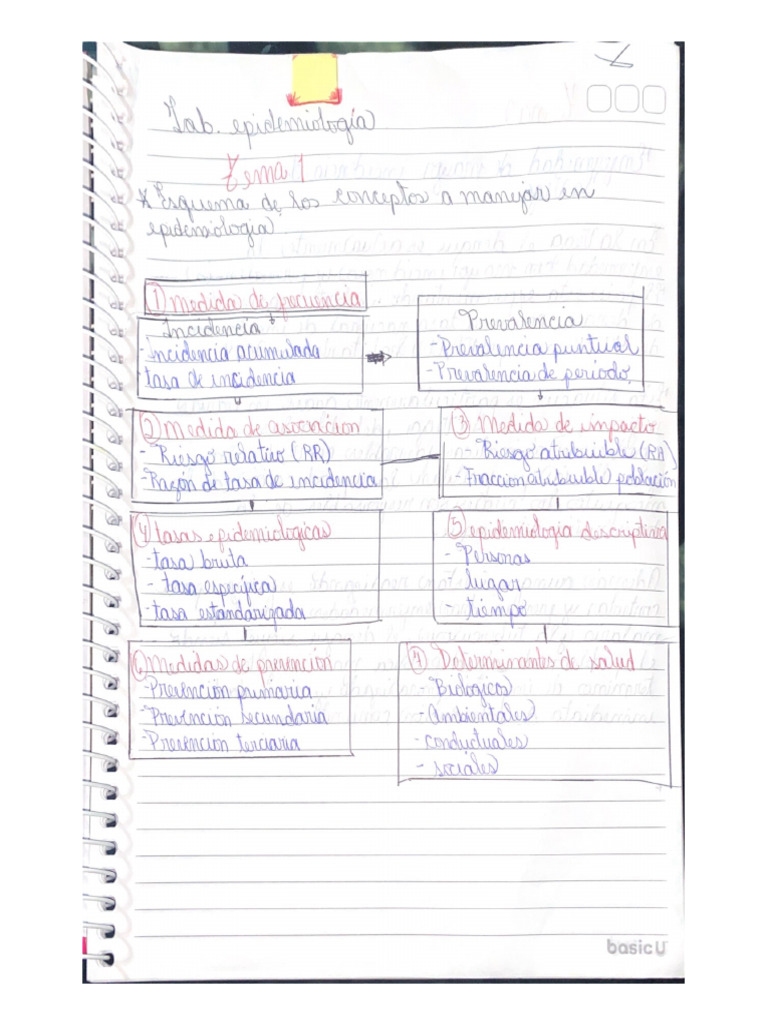 Lab. epidemiología
tema 1
* Esquema de los conceptos a manejar en
epidemiologia.
① Medida de frecuencia
Incidencia
- Incidencia acumulada
- tasa de incidencia
Prevalencia
- Prevalencia puntual
- Prevalencia de periodo.
② Medida de asociacion
- Riesgo relativo (RR)
- Razón de tasa de incidencia
③ Medida de impacto
- Riesgo atribuible (RA)
- Fraccion atribuible población
④ tasas epidemiologicas
- tasa bruta
- tasa específica
- tasa estandarizada
⑤ epidemiologia descriptiva
- Personas
- lugar
- tiempo
⑥ Medidas de prevención
- Prevención primaria
- Prevención secundaria
- Prevención terciaria
⑦ Determinantes de salud
- Biologicos
- Ambientales
- conductuales
- sociales
basic U